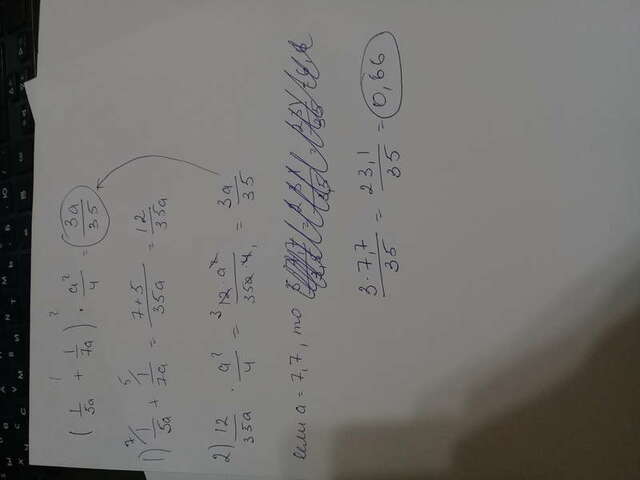 (1/5a + 1/7a) · a²/4 = 3a/35
1) 1/5a + 1/7a = 7+5/35a = 12/35a
2) 12/35a · a²/4 = 12·a²/35a·4 = 3a/35
если a = 7,7, то
3·7,7/35 = 23,1/35 = 0,66